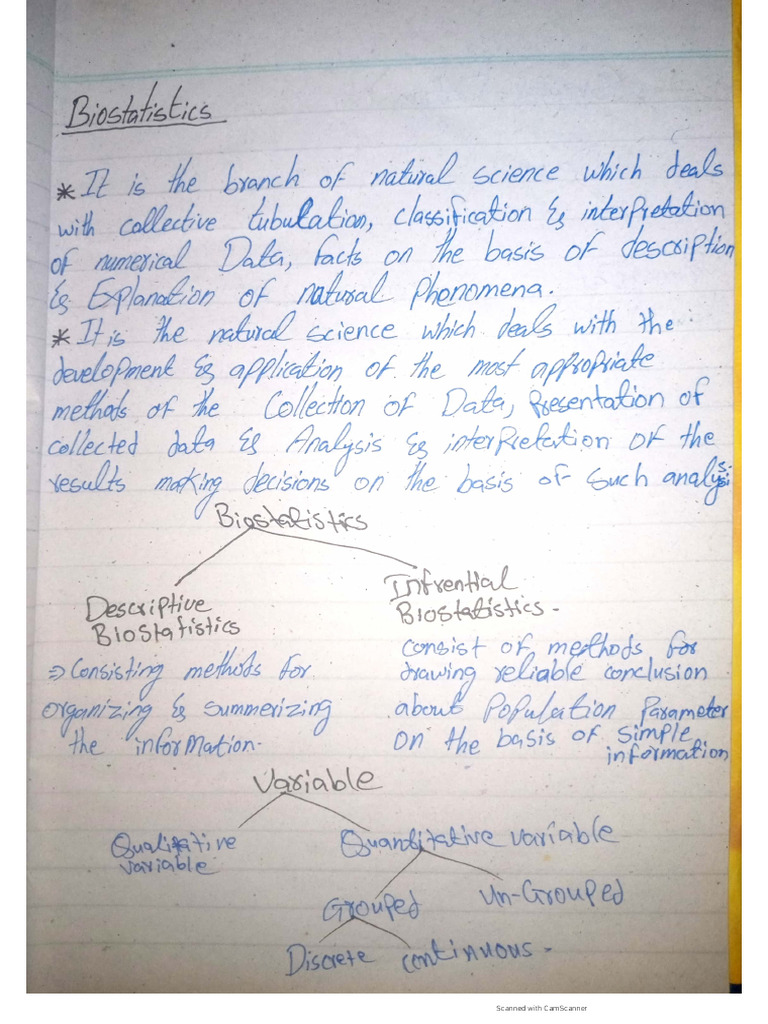 Biostatistics
* It is the branch of natural science which deals
with collective tubulation, classification & interpretation
of numerical Data, facts on the basis of description
& Explanation of natural Phenomena.
* It is the natural science which deals with the
development & application of the most appropriate
methods of the Collection of Data, Presentation of
collected data & Analysis & interpretation of the
results making decisions on the basis of such analysis.
Biostatistics
Descriptive
Biostatistics
⇒ Consisting methods for
organizing & summerizing
the information.
Infrential
Biostatistics.
consist of methods for
drawing reliable conclusion
about Population Parameter
on the basis of simple
information
Variable
Qualitative
variable
Quantitative variable
Grouped
Un-Grouped
Discrete
continuous.
Scanned with CamScanner